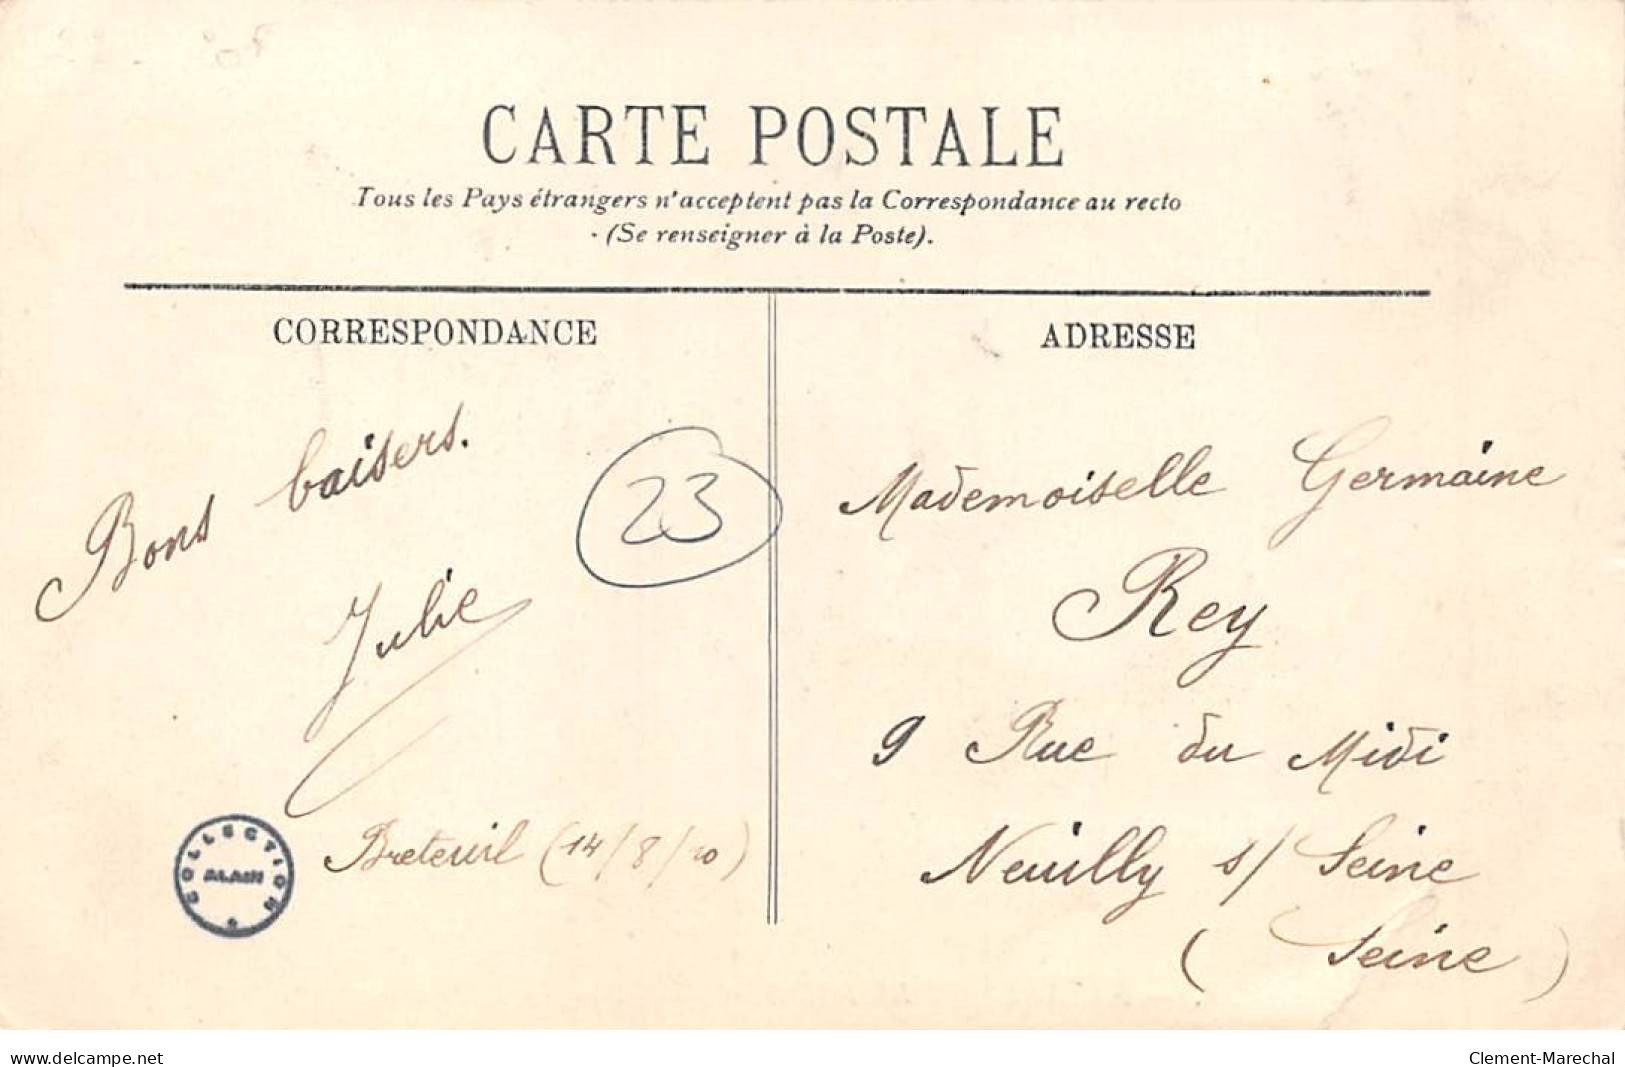 CARTE POSTALE
Tous les Pays étrangers n'acceptent pas la Correspondance au recto
(Se renseigner à la Poste).
CORRESPONDANCE
Bons baisers.
Julie
Breteuil (14/8/10)
23
COLLECTION
ALAIN
ADRESSE
Mademoiselle Germaine
Rey
9 Rue du Midi
Neuilly s/ Seine
(Seine)
www.delcampe.net
Clement-Marechal